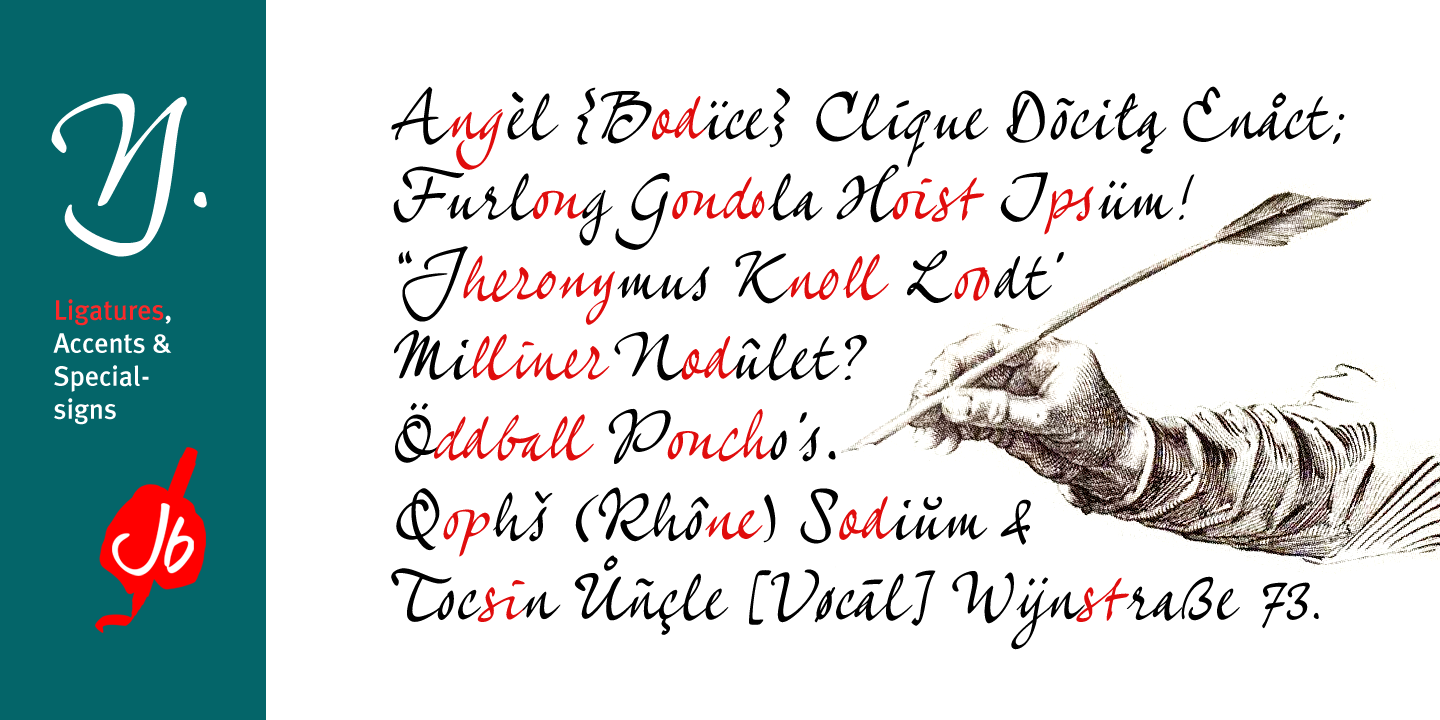 Y.
Ligatures,
Accents &
Special-
signs
Jb
Angèl {Bodïce} Clíque Dõciłą Enåct;
Furlong Gondola Hoist Ipsüm!
“Jheronymus Knoll Loodt’
Milliner Nodûlet?
Öddball Poncho’s.
Qophš (Rhône) Sodiŭm &
Tocsin Ůñçle [Vøcāl] Wÿnstraße 73.